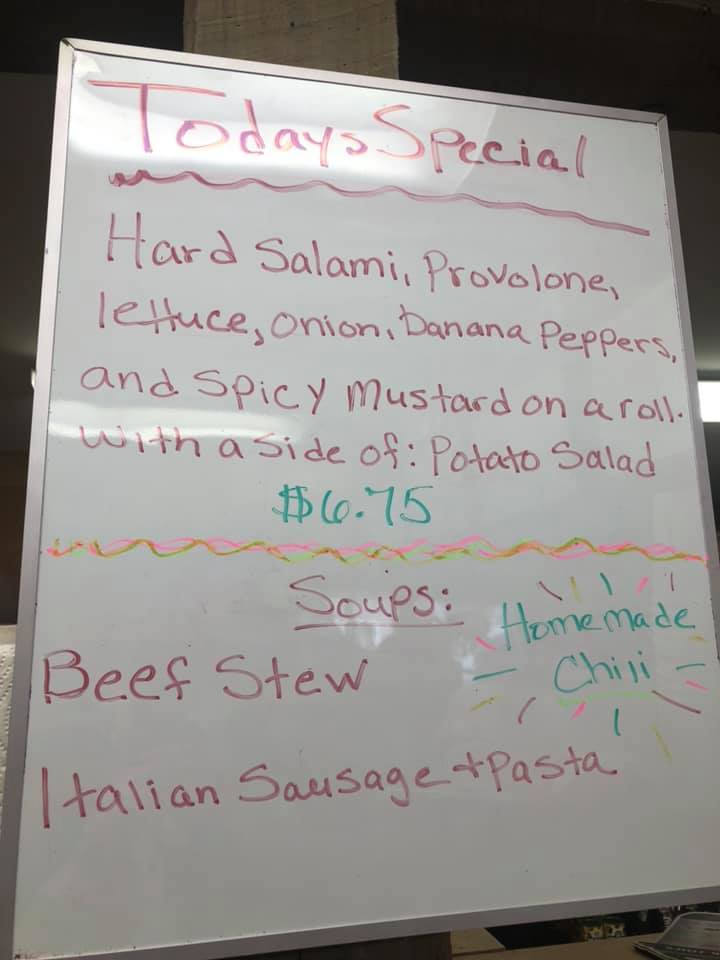 Todays Special
Hard Salami, Provolone,
lettuce, onion, banana Peppers,
and Spicy Mustard on a roll.
With a Side of: Potato Salad
$6.75
Soups:
Homemade
Chili
Beef Stew
Italian Sausage + Pasta